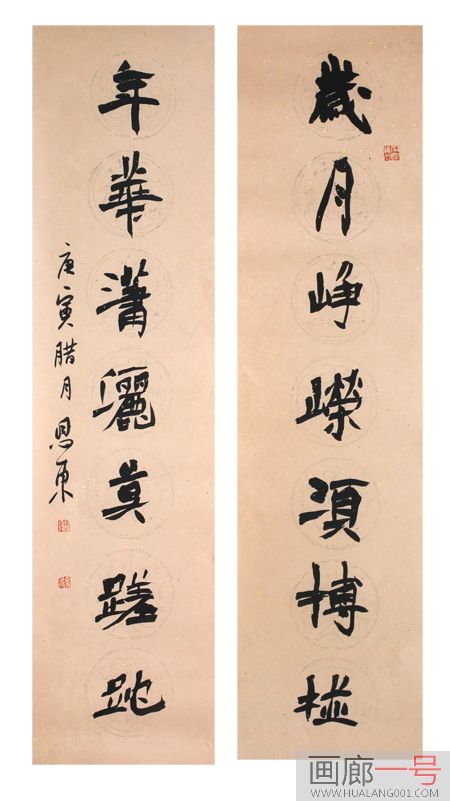 歲月崢嶸須搏
年華瀟灑莫蹉跎
庚寅腊月恩東
画廊一号
WWW.HUALANG001.COM